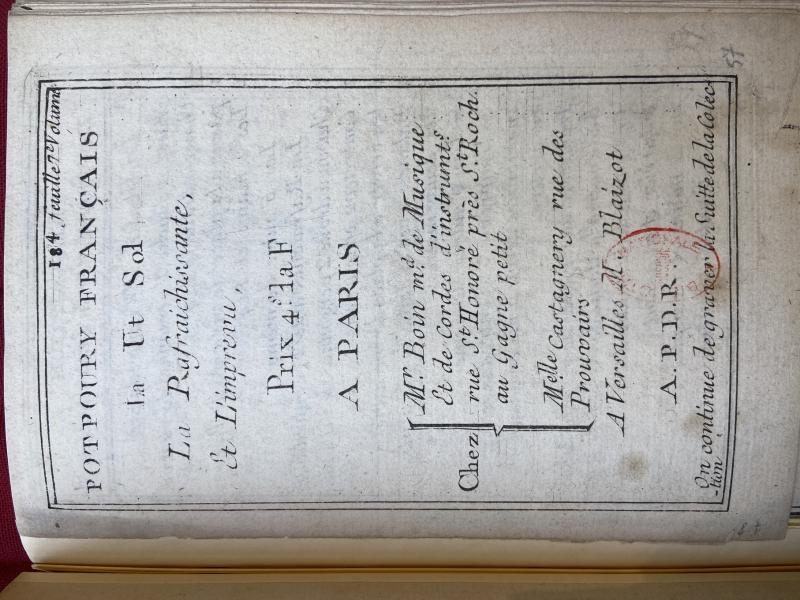 184.e feuille 7.e Volume
POTPOURY FRANÇAIS
la Ut Sol
La Rafraichissante,
Et L'imprevu,
Prix 4.s la F
A PARIS
Chez
M.r Boin m.d de Musique
Et de Cordes d'instrum.ts
rue S.t Honoré près S.t Roch.
au Gagne petit
M.elle Castagnery rue des
Prouvairs
A Versailles M. Blaizot
A. P. D. R.
On continue de graver la Suitte de la Colec
-tion
57